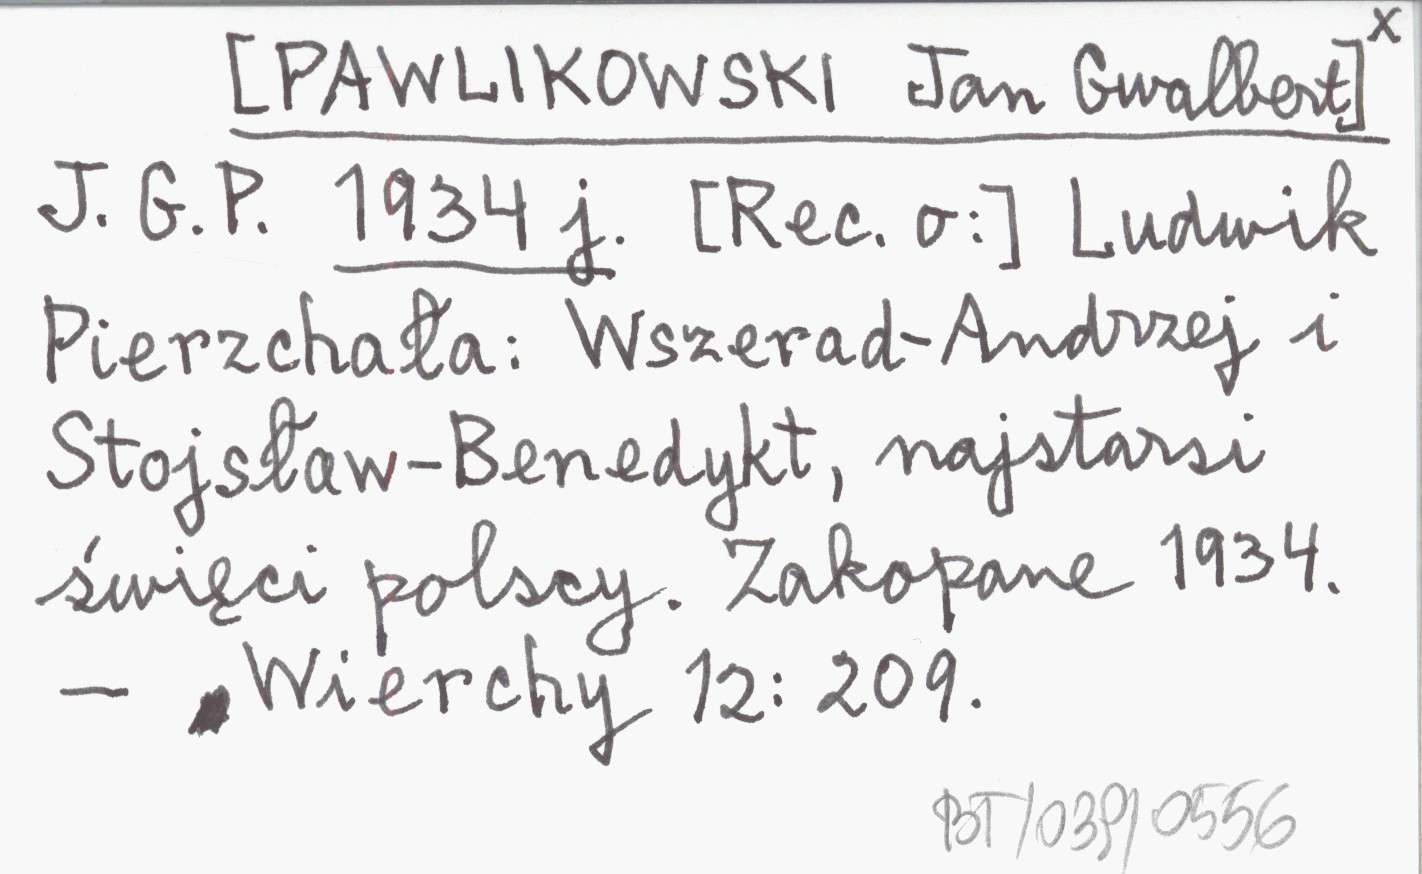 [PAWLIKOWSKI Jan Gwalbert]x
J. G. P. 1934 j. [Rec. o:] Ludwik
Pierzchała: Wszerad-Andrzej i
Stojsław-Benedykt, najstarsi
święci polscy. Zakopane 1934.
— Wierchy 12: 209.
BT/039/0556